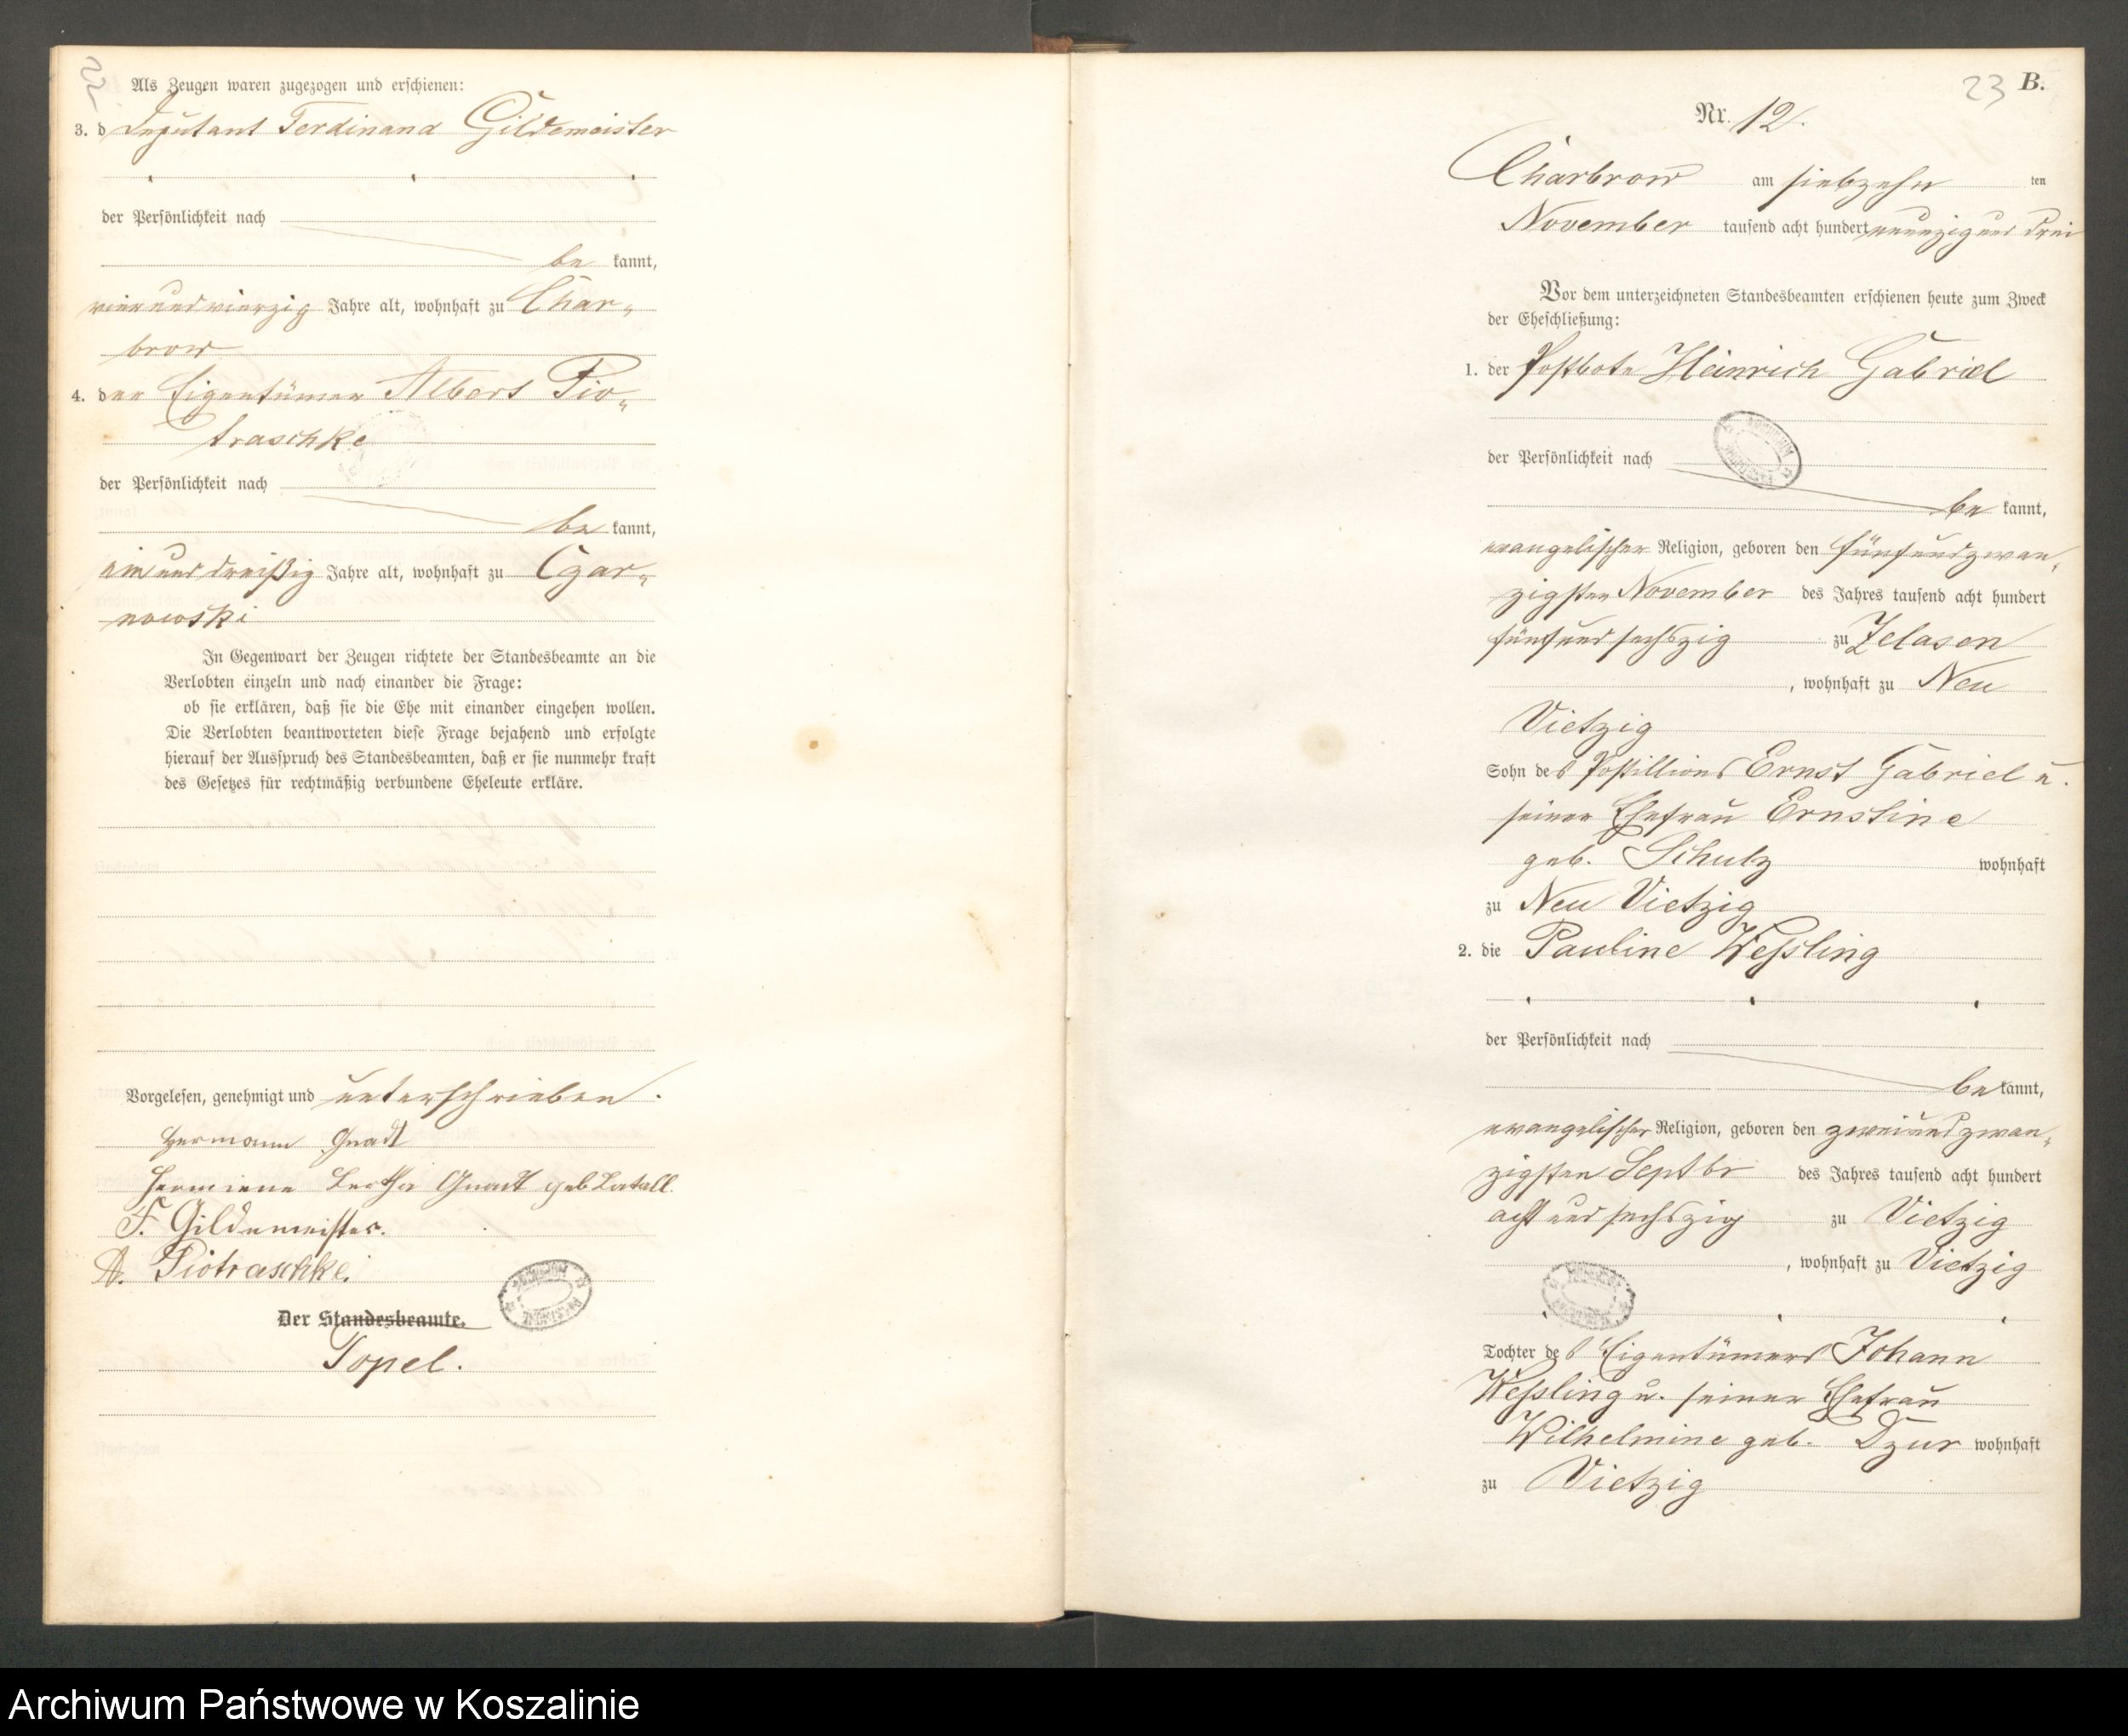 22
Als Zeugen waren zugezogen und erschienen:
3. d Deputant Ferdinand Gildemeister
der Persönlichkeit nach
be kannt,
vierundvierzig Jahre alt, wohnhaft zu Char-
brow
4. der Eigentümer Albert Pio-
traschke
der Persönlichkeit nach
be kannt,
einunddreißig Jahre alt, wohnhaft zu Czar-
nowski
In Gegenwart der Zeugen richtete der Standesbeamte an die
Verlobten einzeln und nach einander die Frage:
ob sie erklären, daß sie die Ehe mit einander eingehen wollen.
Die Verlobten beantworteten diese Frage bejahend und erfolgte
hierauf der Ausspruch des Standesbeamten, daß er sie nunmehr kraft
des Gesetzes für rechtmäßig verbundene Eheleute erkläre.
Vorgelesen, genehmigt und unterschrieben.
Hermann Gnadt
Hermiene Bertha Gnadt geb
F. Gildemeister.
A. Piotraschke.
Der Standesbeamte.
Topel.
23 B.
Nr. 12.
Charbrow am siebzehn ten
November tausend acht hundert neunzig und drei
Vor dem unterzeichneten Standesbeamten erschienen heute zum Zweck
der Eheschließung:
1. der Postbote Heinrich Gabriel
der Persönlichkeit nach
be kannt,
evangelischer Religion, geboren den fünfundzwan-
zigsten November des Jahres tausend acht hundert
fünfundsechszig zu Zelasen
, wohnhaft zu Neu
Vietzig
Sohn des Postillions Ernst Gabriel u.
seiner Ehefrau Ernstine
geb. Schulz wohnhaft
zu Neu Vietzig
2. die Pauline Weßling
der Persönlichkeit nach
be kannt,
evangelischer Religion, geboren den zweiundzwan-
zigsten Septbr des Jahres tausend acht hundert
acht und sechszig zu Vietzig
, wohnhaft zu Vietzig
Tochter des Eigentümers Johann
Weßling u. seiner Ehefrau
Wilhelmine geb. Dzur wohnhaft
zu Vietzig
Archiwum Państwowe w Koszalinie